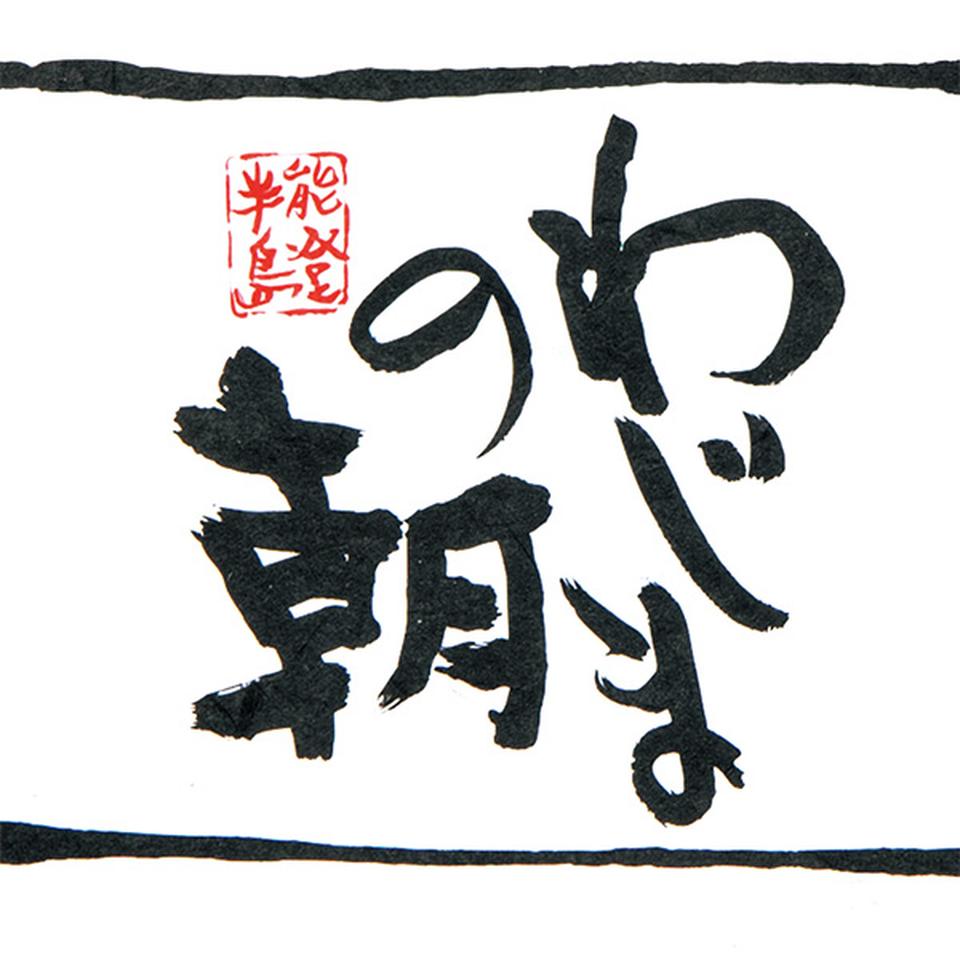 わじま
の朝
能登
半島